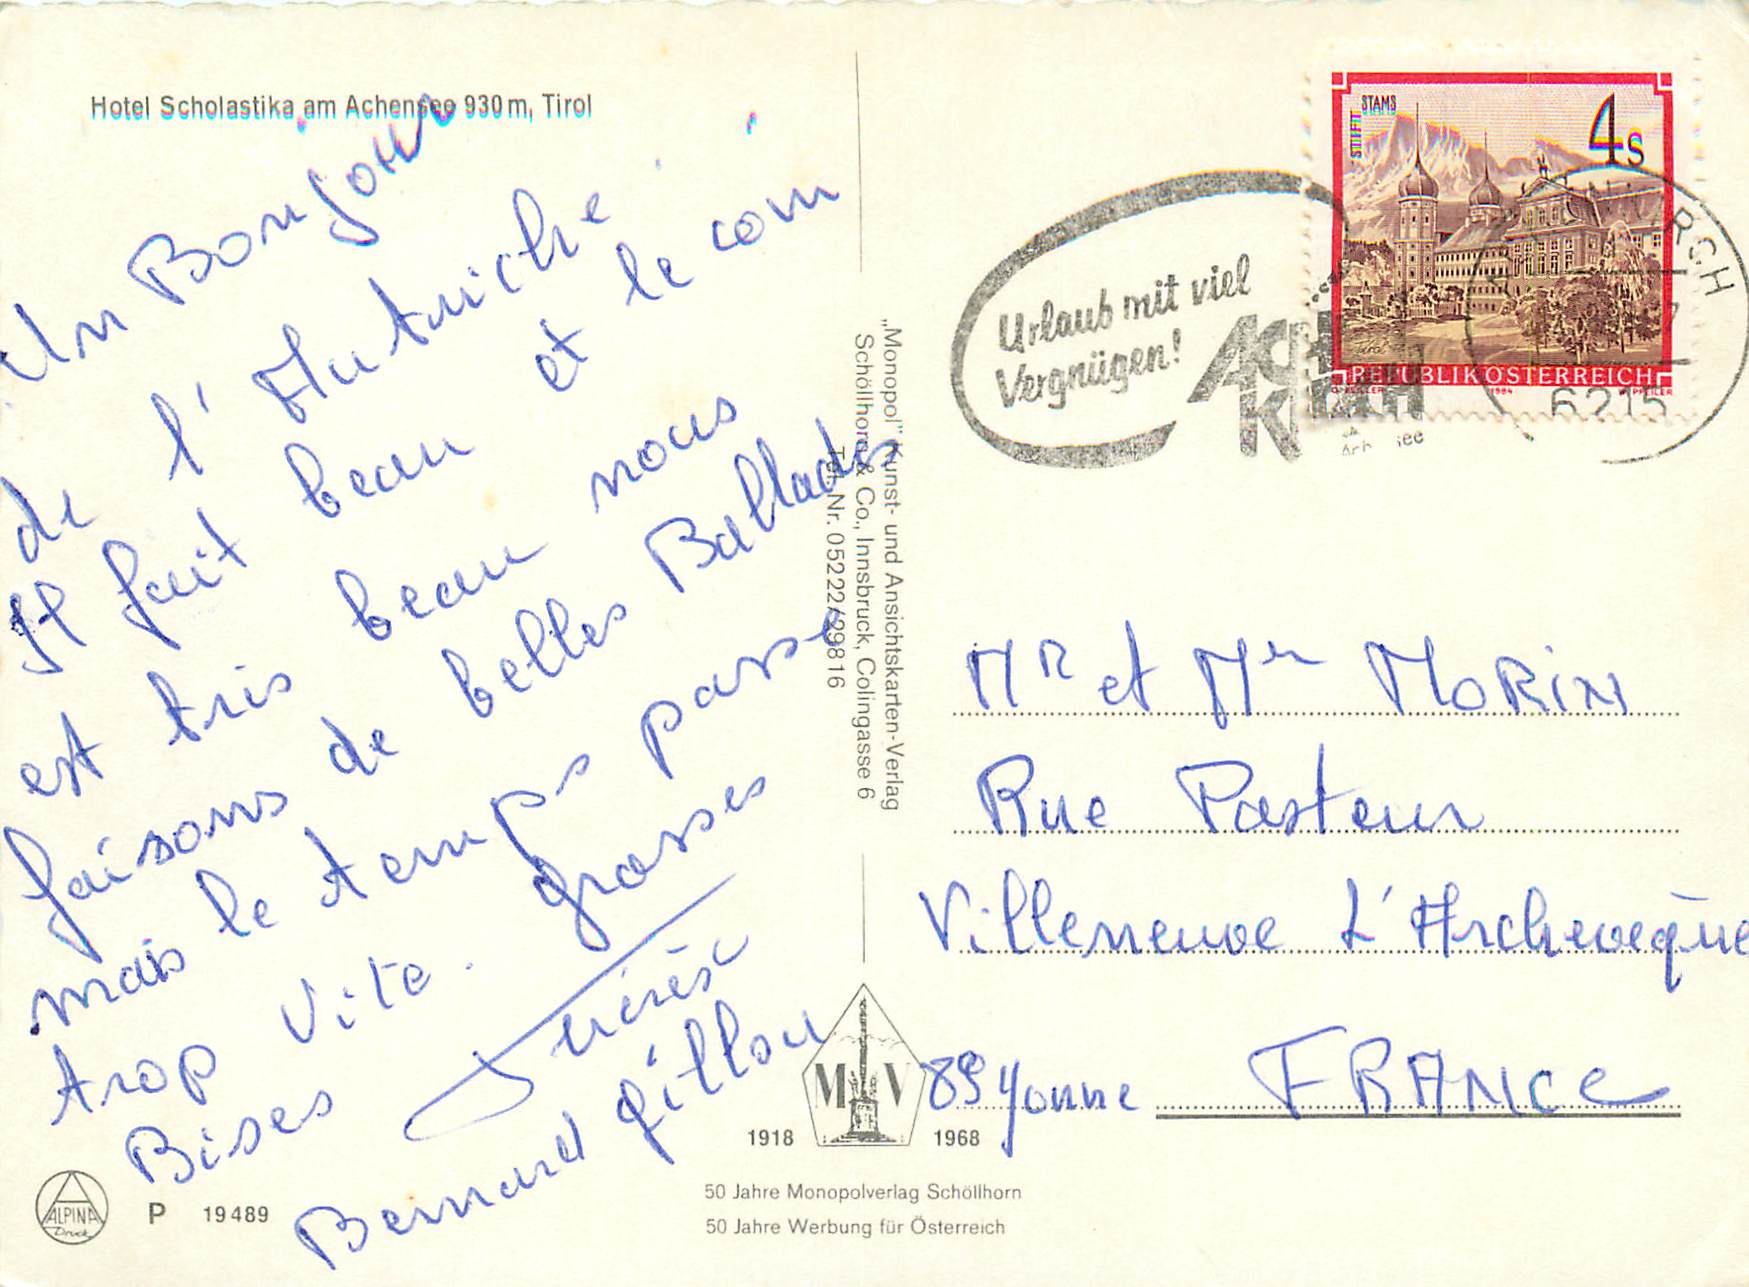 Hotel Scholastika am Achensee 930 m, Tirol
Un Bonjour
de l'Autriche
Il fait beau et le coin
est tris beau nous
faisons de belles Ballades
mais le temps passe
trop vite. grosses
Bises Thérèse
Bernard gillou
P 19489
ALPINA
Druck
„Monopol" Kunst- und Ansichtskarten-Verlag
Schöllhorn & Co., Innsbruck, Colingasse 6
Tel. Nr. 05222/29816
M V
1918 1968
50 Jahre Monopolverlag Schöllhorn
50 Jahre Werbung für Österreich
Urlaub mit viel
Vergnügen!
STIFT STAMS
4 s
REPUBLIK ÖSTERREICH
1984
6215
Mr et Mr MORIN
Rue Pasteur
Villeneuve L'Archevèque
89 Yonne FRANCE